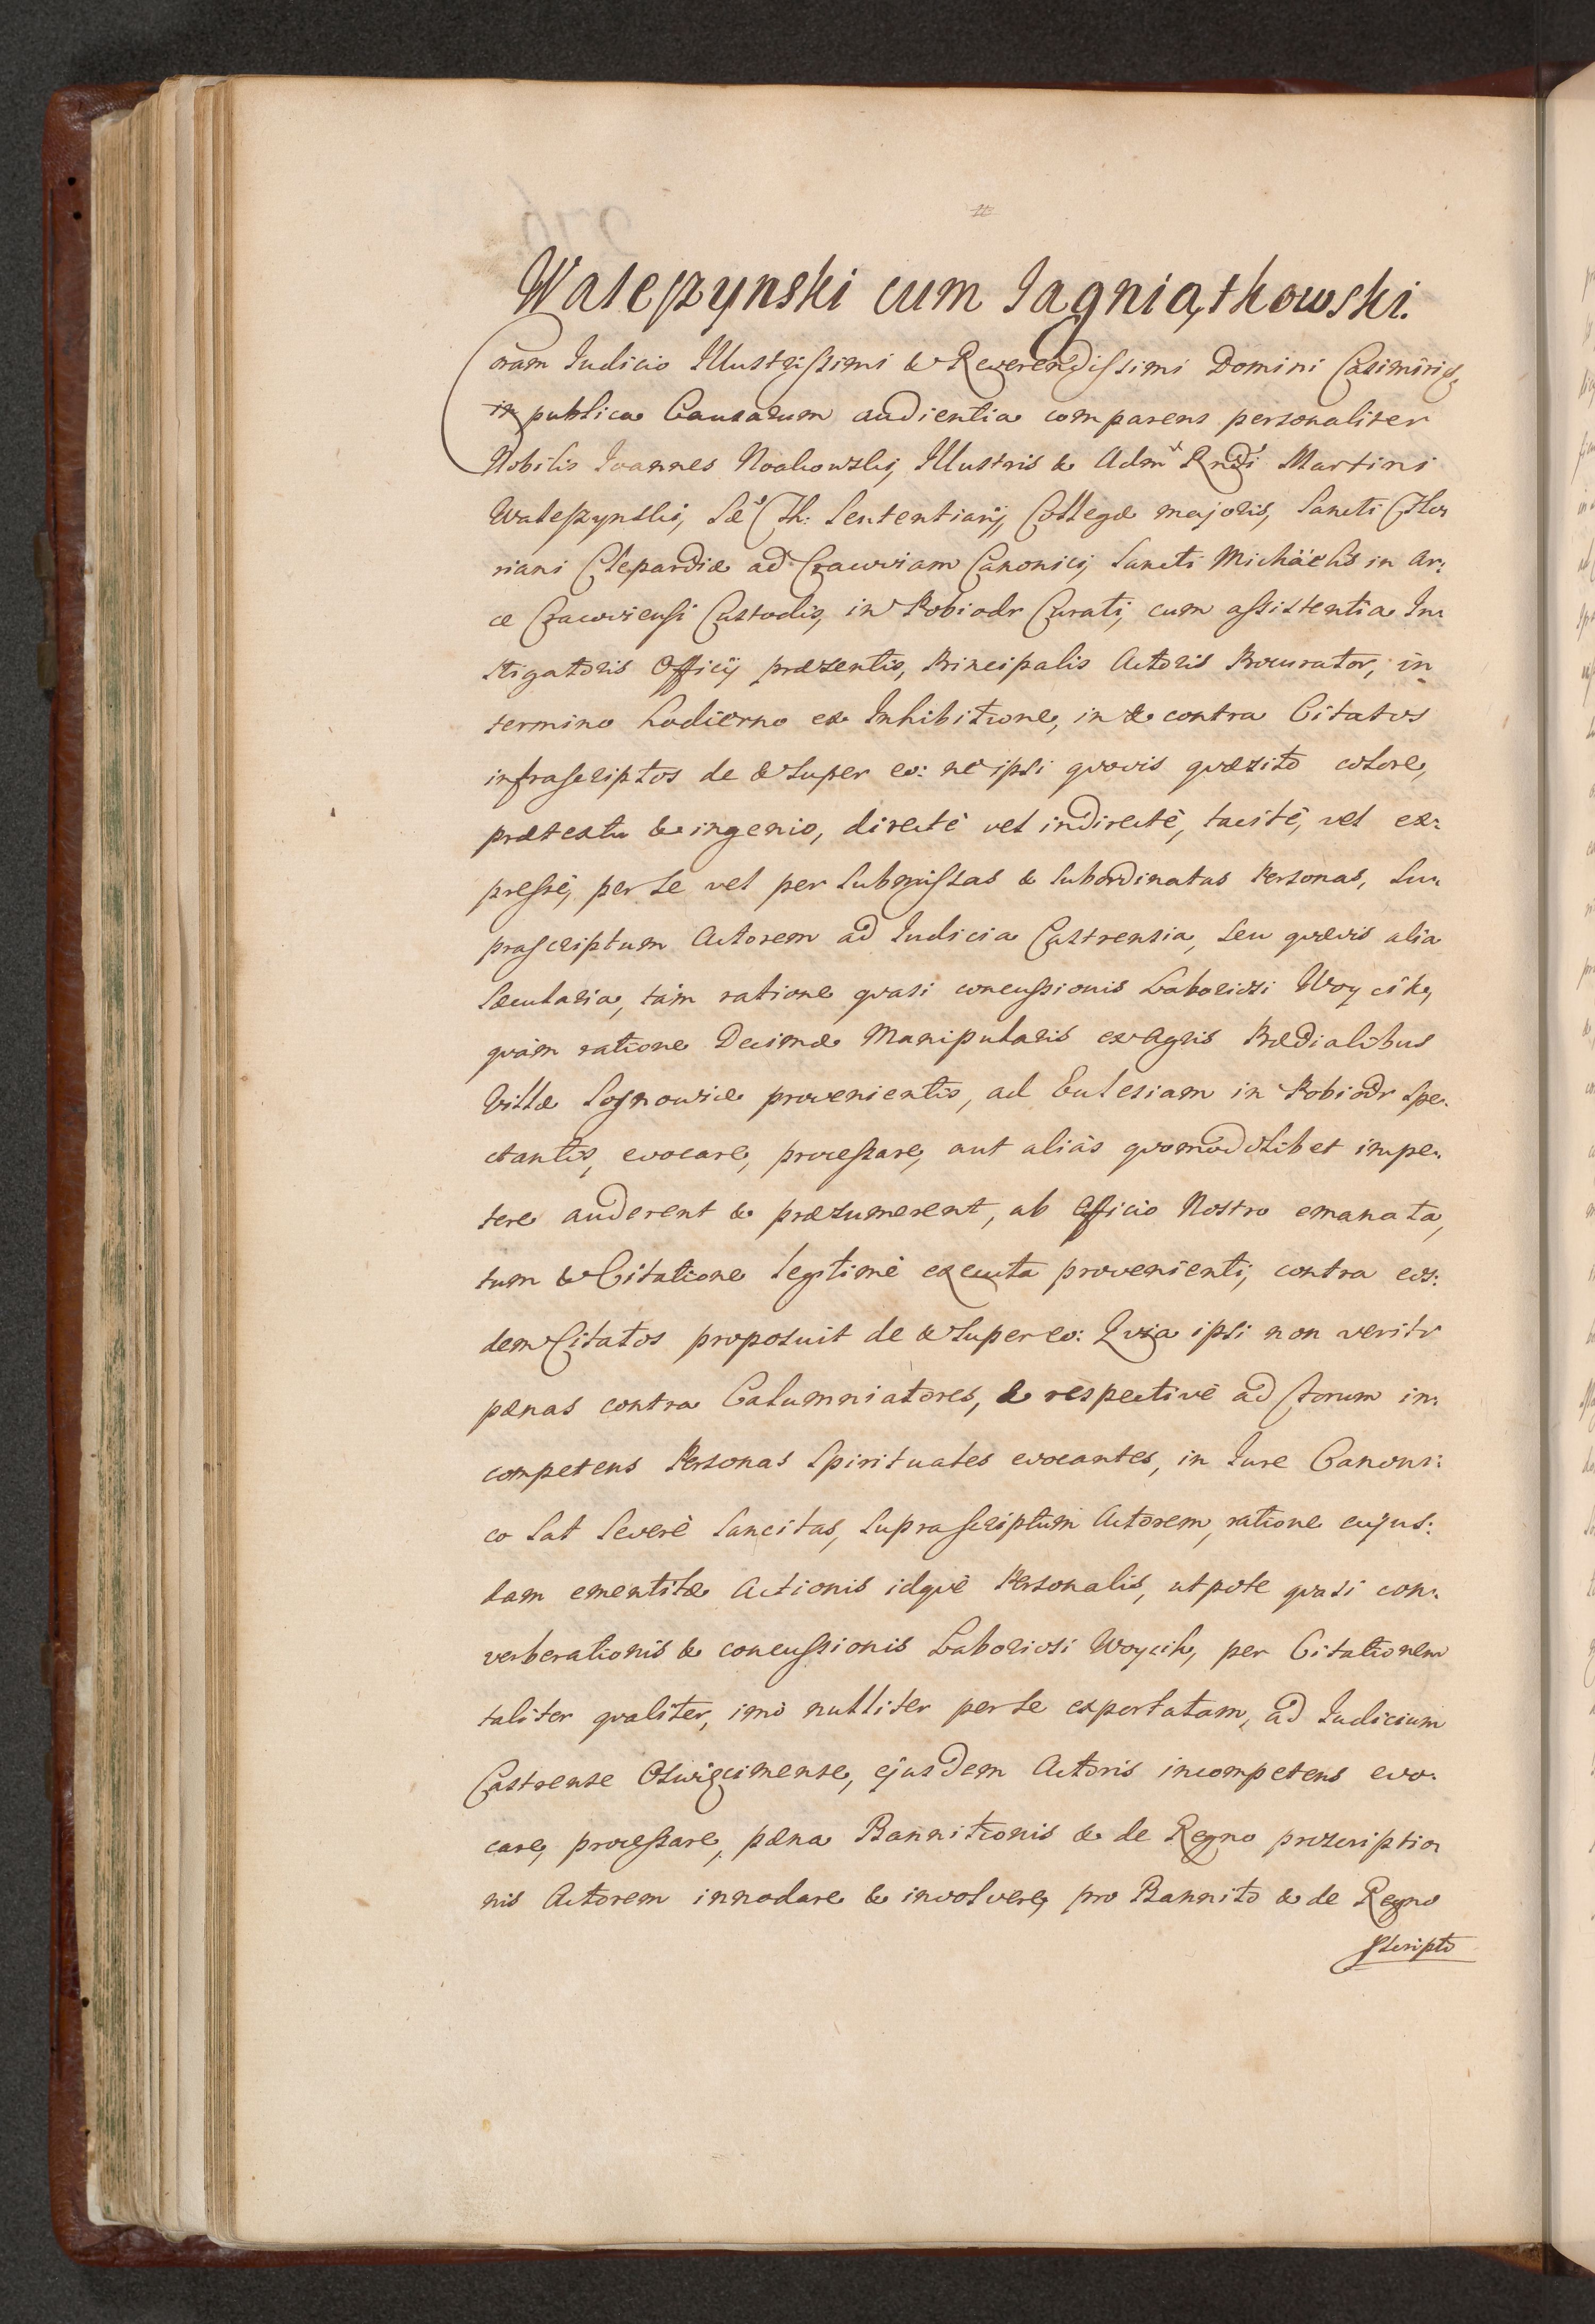 Waleszynski cum Jagniątkowski.
Coram Iudicio Illustrissimi & Reverendissimi Domini Casimiri &c
in publica Causarum audientia comparens personaliter
Nobilis Ioannes Noakowski, Illustris & Adm Rndi Martini
Waleszynski, Sæ Th: Sententiarij, Collegæ majoris, Sancti Flo,
riani Clepardiæ ad Cracoviam Canonici, Sancti Michaëlis in Ar:
ce Cracoviensi Custodis, in Kobiodr Curati, cum assistentia In,
stigatoris Officij præsentis, Principalis Actoris Procurator, in
termino hodierno ex Inhibitione, in & contra Citatos
infrascriptos de & super eo: ne ipsi quovis quæsito colore,
prætextu & ingenio, directè vel indirectè, tacitè, vel ex:
pressè, per se vel per submissas & subordinatas Personas, su,
prascriptum Actorem ad Iudicia Castrensia, seu quævis alia
sæcularia, tàm ratione quasi concussionis Laboriosi Woycik,
quàm ratione Decimæ Manipularis ex Agris Prædialibus
Villæ Sosnowice provenientis, ad Eclesiam in Kobiodr spe,
ctantis, evocare, processare, aut aliàs quomodolibet impe,
tere auderent & præsumerent, ab Officio Nostro emanata,
tum & Citatione legitimè executa provenienti, contra eos:
dem Citatos proposuit de & super eo: Quia ipsi non veriti
pænas contra Calumniatores, & respectivè ad forum in:
competens Personas Spirituales evocantes, in Iure Canoni:
co sat severè sancitas, suprascriptum Actorem, ratione cujus:
dam ementitæ Actionis idquè Personalis, utpote quasi con:
verberationis & concussionis Laboriosi Woycik, per Citationem
taliter qualiter, imò nulliter per se exportatam, ad Iudicium
Castrense Oswięcimense, ejusdem Actoris incompetens evo,
care, processare, pæna Bannitionis & de Regno proscriptio,
nis Actorem innodare & involvere, pro Bannito & de Regno
pscripto